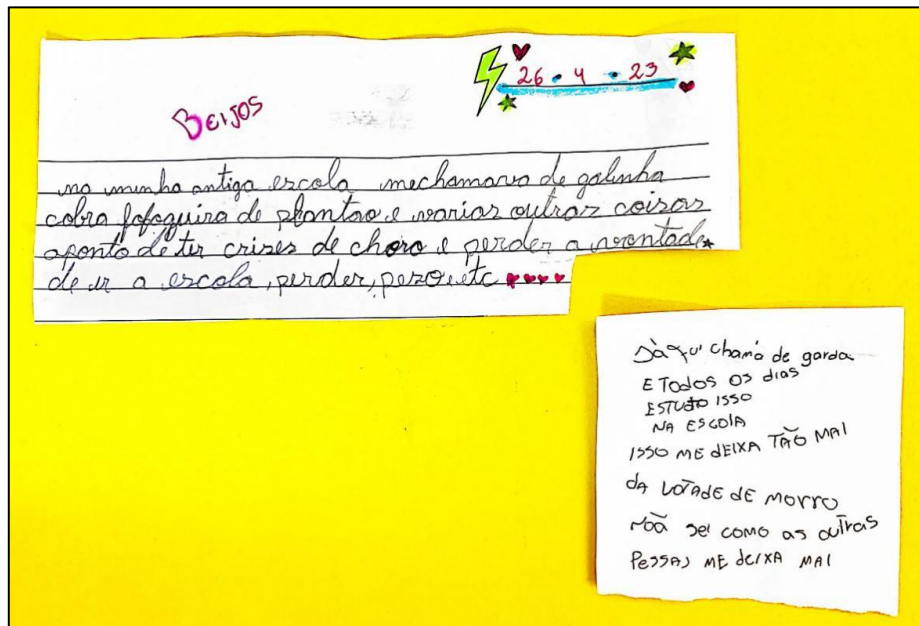 26 • 4 • 23
BEIJOS
na minha antiga escola mechamava de galinha
cobra fofoquira de plantao e varias outras coisas
aponto de ter crises de choro e perder a vontade
de ir a escola, perder, peso, etc
chamo de garda
E TODOS OS dias
ESTUDO ISSO
NA ESCOLA
ISSO ME dEIXA TÃO MAL
dA VOTADE dE MORRO
NOÃ SEI COMO AS OUTRAS
PESSAS ME DEIXA MAL